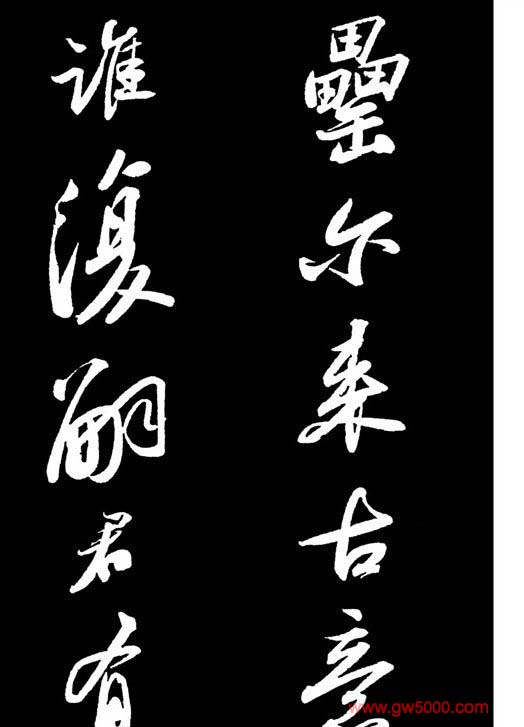 罍尔来古意
谁復嗣君有
www.gw5000.com